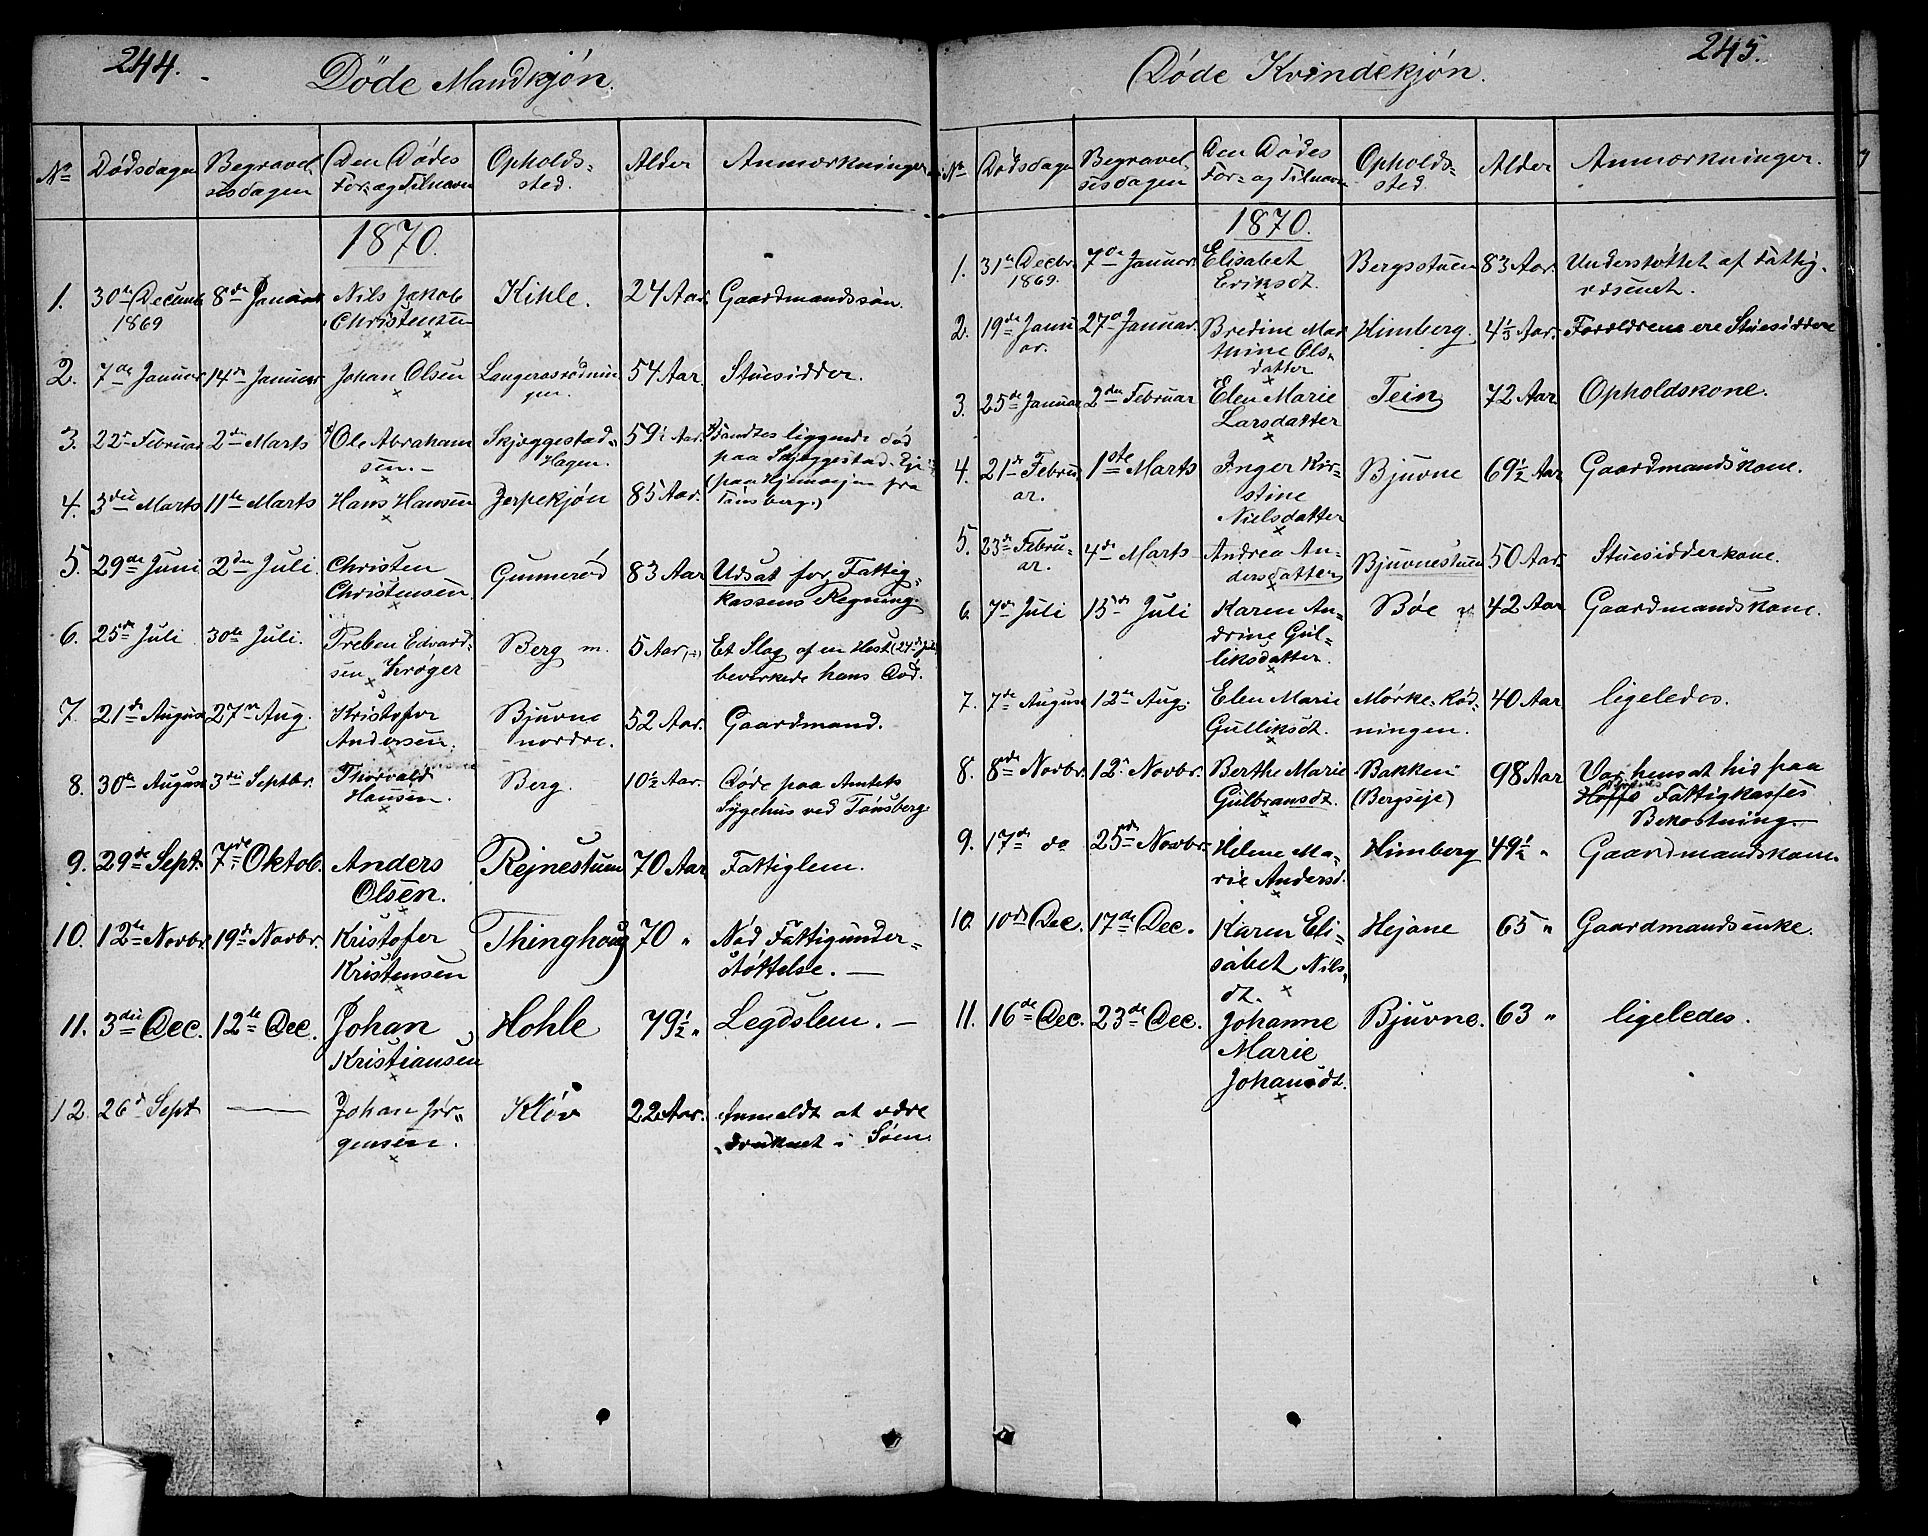 244.
Døde Mandkjøn.
No Dødsdagen Begravelsesdagen Den Dødes For- og Tilnavn Opholdssted. Alder Anmærkninger
1870.
1. 30te Decemb 1869 8de Januar Nils Jakob Christensen Kihle. 24 Aar. Gaardmandssøn.
2. 7de Januar 14de Januar Johan Olsen Langeraasrødningen. 54 Aar. Stuesidder.
3. 22de Februar 2den Marts Ole Abrahamsen. Skjeggestad-Hagen. 59½ Aar. Fandtes liggende død paa Skjeggestad Eje (paa Hjemvejen fra Tønsberg.)
4. 3die Marts 11te Marts Hans Hansen Jerpekjøn 85 Aar.
5. 29de Juni 2den Juli. Christen Christensen. Gunnerød 83 Aar Udsat for Fattigkassens Regning.
6. 25de Juli 30te Juli. Preben Edvardsen Krøger Berg m. 5 Aar Et Slag af en Hest (24de Juli) bevirkede hans Død.
7. 21de August 27de Aug. Kristofer Andersen. Bjuvne nordre. 52 Aar. Gaardmand.
8. 30te August 3die Septbr. Thorvald Hansen. Berg. 10½ Aar. Døde paa Amtets Sygehus ved Tønsberg
9. 29de Sept. 7de Oktob. Anders Olsen. Rejnestuen 70 Aar Fattiglem.
10. 12te Novbr. 19de Novbr. Kristofer Kristensen Thinghoug 70 " Nød Fattigunderstøttelse. —
11. 3die Dec. 12te Dec. Johan Kristiansen Hohle 79½ " Legdslem. —
12. 26d Sept — Johan Jørgensen. Kløv 22 Aar. Anmeldt at være druknet i Søen.
245.
Døde Kvindekjøn.
No Dødsdagen Begravelsesdagen Den Dødes For- og Tilnavn Opholdssted. Alder Anmærkninger.
1870.
1. 31te Decbr. 1869. 7de Januar. Elisabet Eriksdt. Bergsstuen 83 Aar. Understøttet af Fattigvæsenet.
2. 19de Januar. 27de Januar. Bredine Mathine Olsdatter Himberg. 4⅓ Aar. Forældrene ere Stuesiddere
3. 25de Januar 2den Februar Elen Marie Larsdatter Tein 72 Aar Opholdskone.
4. 21de Februar. 1ste Marts Inger Kirstine Nielsdatter Bjuvne 69½ Aar Gaardmandskone.
5. 23de Februar. 4de Marts Andrea Andersdatter Bjuvnestuen 50 Aar. Stuesidderkone.
6. 7de Juli 15de Juli Karen Andrine Gulliksdatter. Bøe 42 Aar Gaardmandskone.
7. 7de August 12te Aug. Elen Marie Gulliksdt. Mørke-Rødningen. 40 Aar ligeledes.
8. 8de Novbr. 12te Novbr. Berthe Marie Gulbransdt. Bakken (Bergseje) 98 Aar Var hensat hid paa Fattigkasses Bekostning
9. 17de do 25de Novbr. Helene Marie Andersd. Himberg 49½ " Gaardmandskone.
10. 10de Dec. 17de Dec. Karen Elisabet Nilsdt. Hejane 65 " Gaardmandsenke.
11. 16de Dec. 23de Dec. Johanne Marie Johansdt. Bjuvne. 63 " ligeledes.